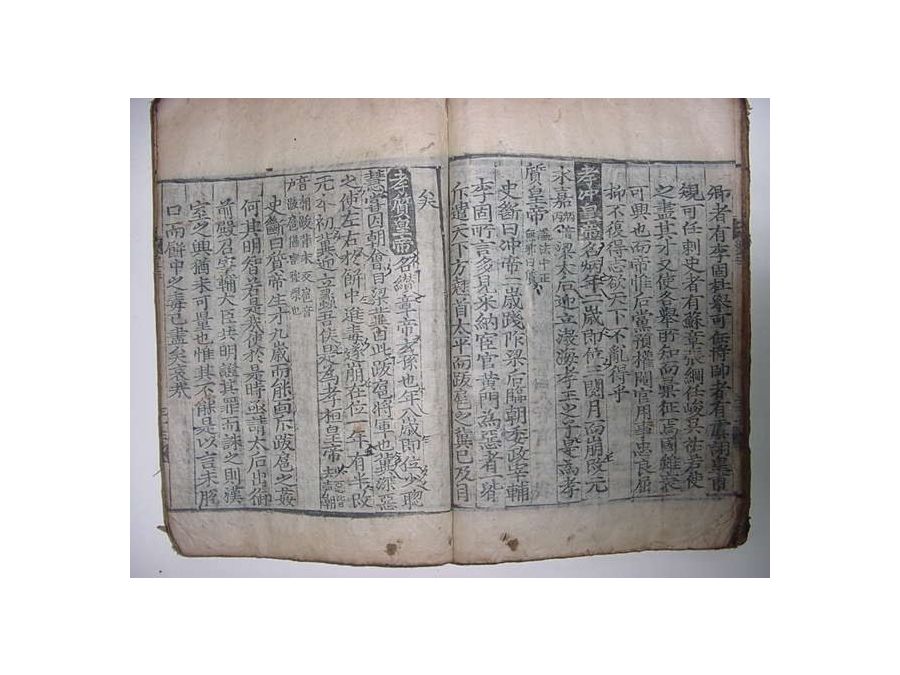 卿者有李固杜擧可任將帥者有虞詡皇甫
規可任刺史者有蘇章張綱任峻
之盡其才又使各擧所知而
可興也而帝惟后黨預權閹官用事忠良屈
抑不復得志欲天下不亂得乎
孝冲皇帝名炳年二歲即位三閱月而崩改元
永嘉 梁太后迎立渤海孝王之子是爲孝
質皇帝
史斷曰冲帝二歲踐阼梁后臨朝委政宰輔
李固所言多見采納宦官黃門爲惡者一皆
斥遣天下方翹首太平而跋扈之冀已及目
矣
孝質皇帝名纘章帝玄孫也年八歲即位少聰
慧嘗因朝會目梁冀曰此跋扈將軍也冀深惡
之使左右於餅中進毒遂崩在位一年有半改
元本初冀迎立蠡吾侯是爲孝桓皇帝
史斷曰質帝生才九歲而能面斥跋扈之姦
何其明智若是哉使於是時亟請太后出御
前殿召宰輔大臣共明證其罪而誅之則漢
室之興猶未可量也惟其不能是以言未脫
口而餅中之毒已盡矣哀哉